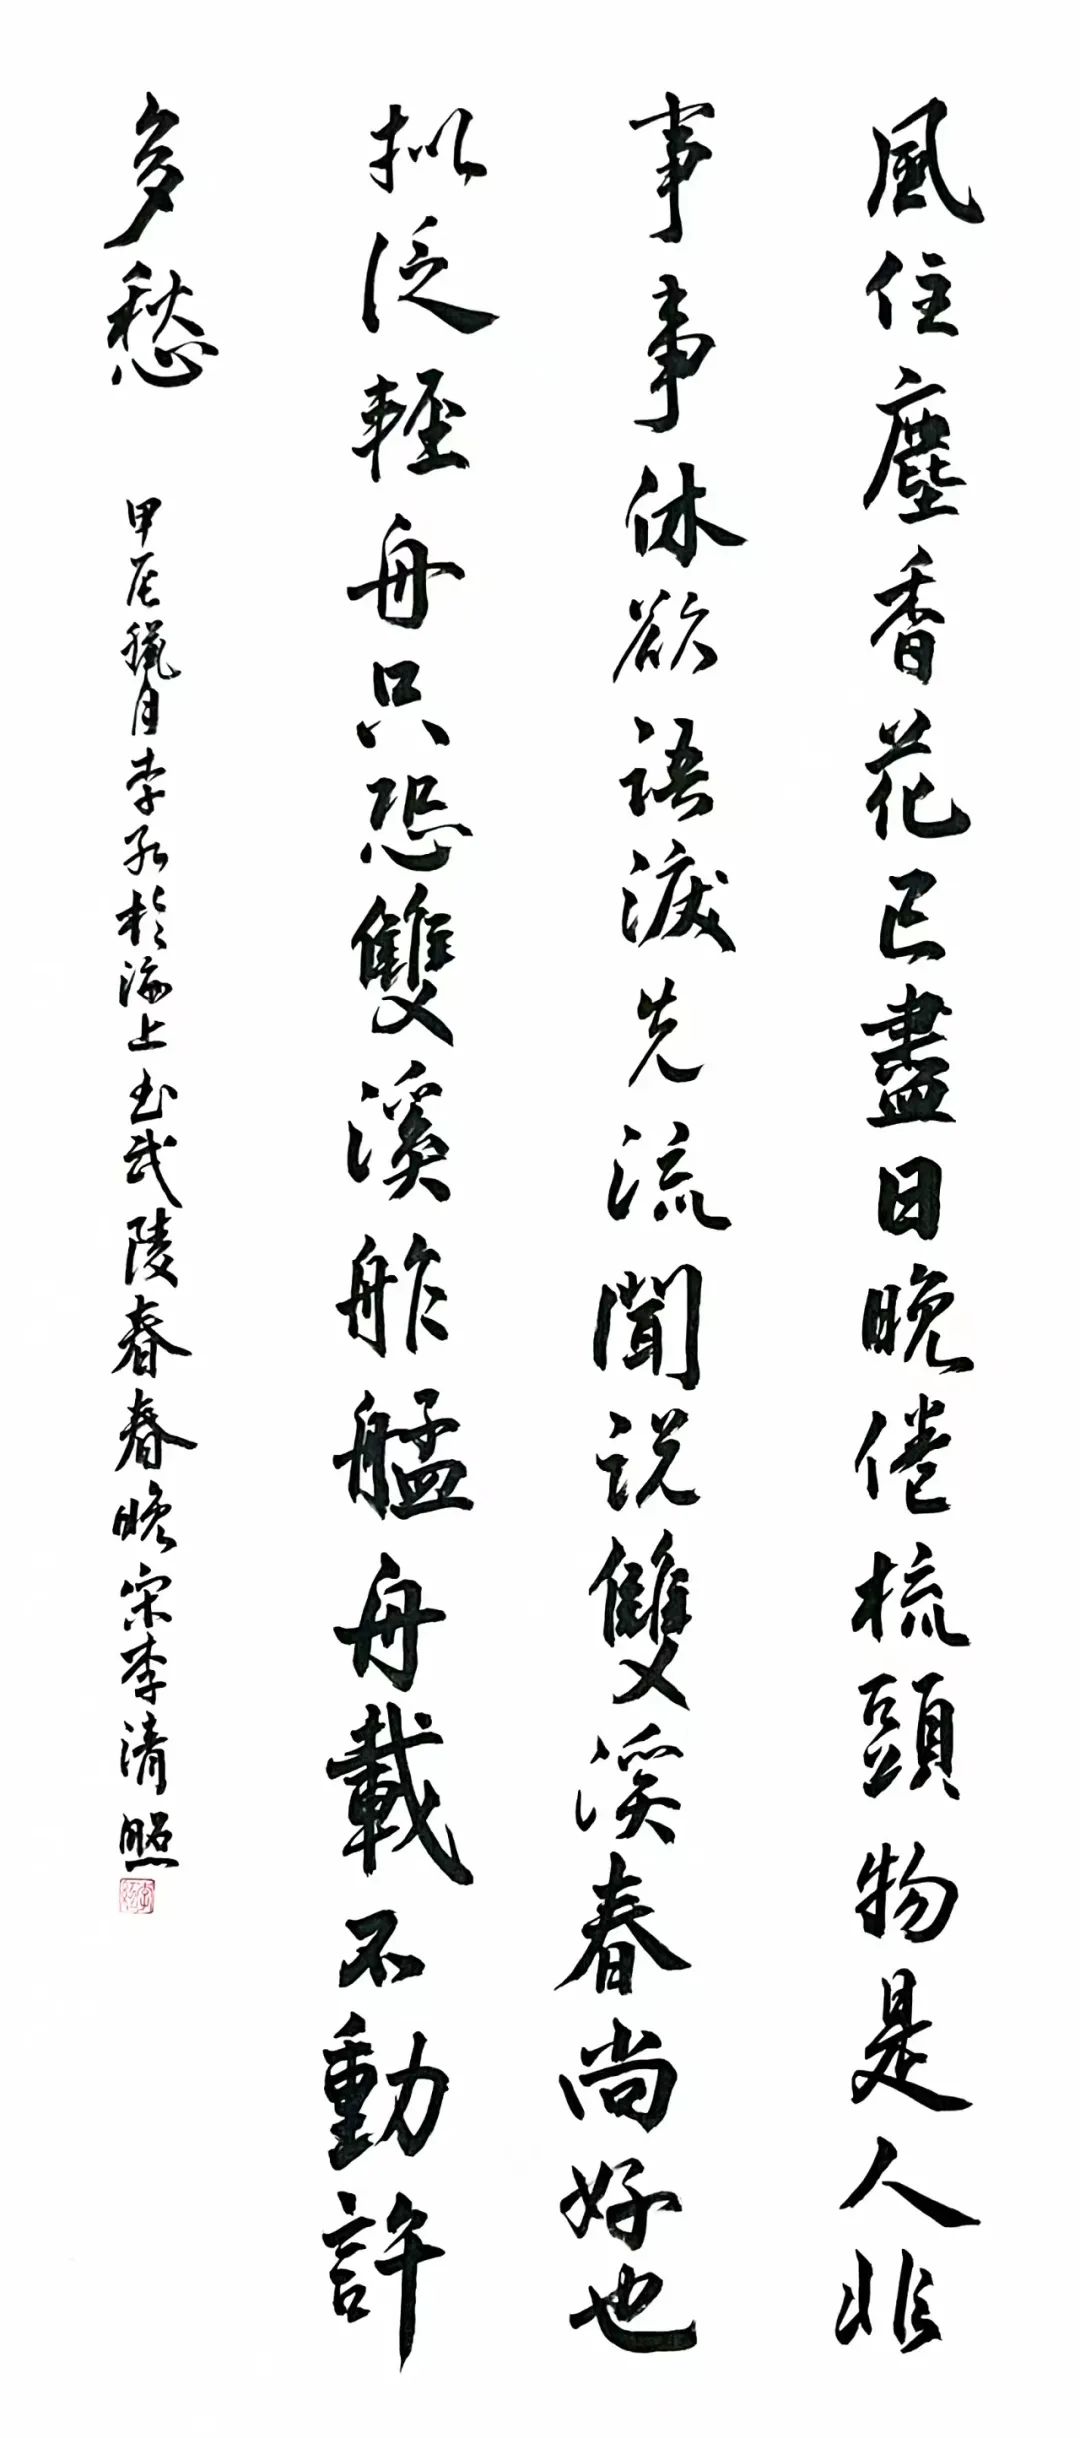 風住塵香花已盡日晚倦梳頭物是人非
事事休欲語淚先流聞説雙溪春尚好也
拟泛輕舟只恐雙溪舴艋舟載不動許
多愁
甲辰臘月李於海上书武陵春春晚宋李清照